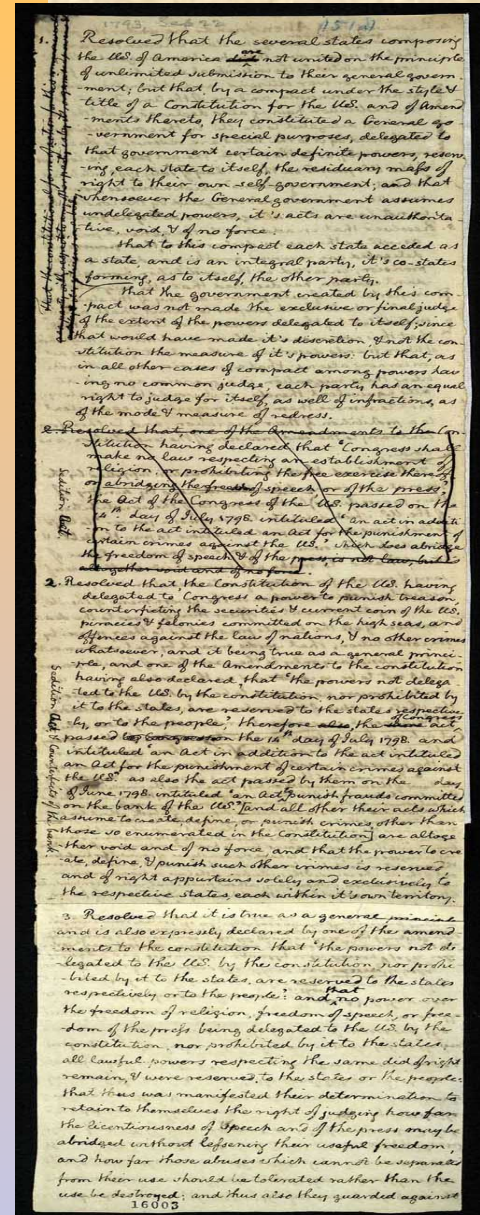 1793, Sep 22
1. Resolved that the several states composing
the US. of America are not united on the principle
of unlimited submission to their general govern-
-ment; but that by a compact under the style &
title of a Constitution for the US. and of Amend
-ments thereto, they constituted a General go
-vernment for special purposes, delegated to
that government certain definite powers, reserv
-ing, each state to itself, the residuary mass of
right to their own self-government; and that
whensoever the General government assumes
undelegated powers, it's acts are unauthorita
-tive, void, & of no force.
that to this compact each state acceded as
a state, and is an integral party, it's co-states
forming, as to itself, the other party.
that the government created by this com-
-pact was not made the exclusive or final judge
of the extent of the powers delegated to itself; since
that would have made it's discretion, & not the con
-stitution the measure of it's powers: but that, as
in all other cases of compact among powers hav
-ing no common judge, each party has an equal
right to judge for itself, as well of infractions, as
of the mode & measure of redress.
2. Resolved that, one of the Amendments to the Con
-stitution having declared that "Congress shall
make no law respecting an establishment of
religion, or prohibiting the free exercise thereof,
or abridging the freedom of speech or of the press,"
the Act of the Congress of the US. passed on the
14th day of July 1798. intituled "an act in additi
-on to the act intituled an Act for the punishment of
certain crimes against the US." which does abridge
the freedom of speech & of the press, is not law, but is
altogether void and of no force
Sedition Act
2. Resolved that the Constitution of the US. having
delegated to Congress a power to punish treason,
counterfieting the securities & current coin of the US.
piracies & felonies committed on the high seas, and
offences against the law of nations, & no other crimes
whatsoever, and it being true as a general princi-
-ple, and one of the Amendments to the constitution
having also declared, that "the powers not delega
-ted to the US. by the constitution, nor prohibited by
it to the states, are reserved to the states respective
-ly, or to the people" therefore also, the same act of Congress
passed by Congress on the 14th day of July 1798. and
intituled "an Act in addition to the act intituled
an Act for the punishment of certain crimes against
the US." as also the act passed by them on the day
of June 1798. intituled "an Act to punish frauds committed
on the bank of the US." [and all other their acts which
assume to create, define, or punish crimes, other than
those so enumerated in the constitution] are altoge
-ther void and of no force, and that the power to cre
-ate, define, & punish such other crimes is reserved,
and of right appurtains solely and exclusively to
the respective states, each within it's own territory.
Sedition Act & Counterfeits of the bank.
3. Resolved that it is true as a general principle
and is also expressly declared by one of the amend
-ments to the constitution that "the powers not de
-legated to the US. by the constitution, nor prohi
-bited by it to the states, are reserved to the states
respectively or to the people": and that no power over
the freedom of religion, freedom of speech, or free-
-dom of the press being delegated to the US. by the
constitution, nor prohibited by it to the states,
all lawful powers respecting the same did of right
remain, & were reserved, to the states or the people:
that thus was manifested their determination to
retain to themselves the right of judging how far
the licentiousness of speech and of the press may be
abridged without lessening their useful freedom,
and how far those abuses which cannot be separated
from their use should be tolerated rather than the
use be destroyed; and thus also they guarded against
16003